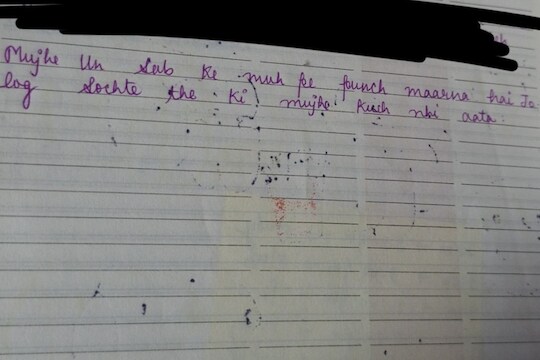 Mujhe Un Sab Ke muh pe punch maarna hai Jo
log Sochte the ki mujhe kush nhi aata